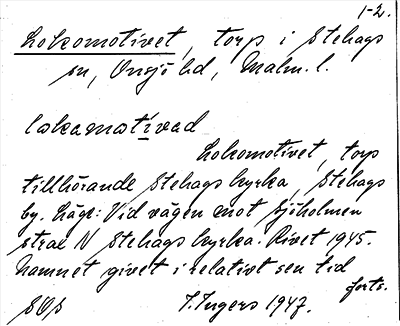 1-2.
Lokomotivet, torp i Stehags
sn, Onsjö hd, Malm. l.
lokamotívad
Lokomotivet, torp
tillhörande Stehags kyrka, Stehags
by. Läge: Vid vägen mot Sjöholmen
strax N Stehags kyrka. Rivet 1945.
Namnet givet i relativt sen tid
forts.
I. Ingers 1947.